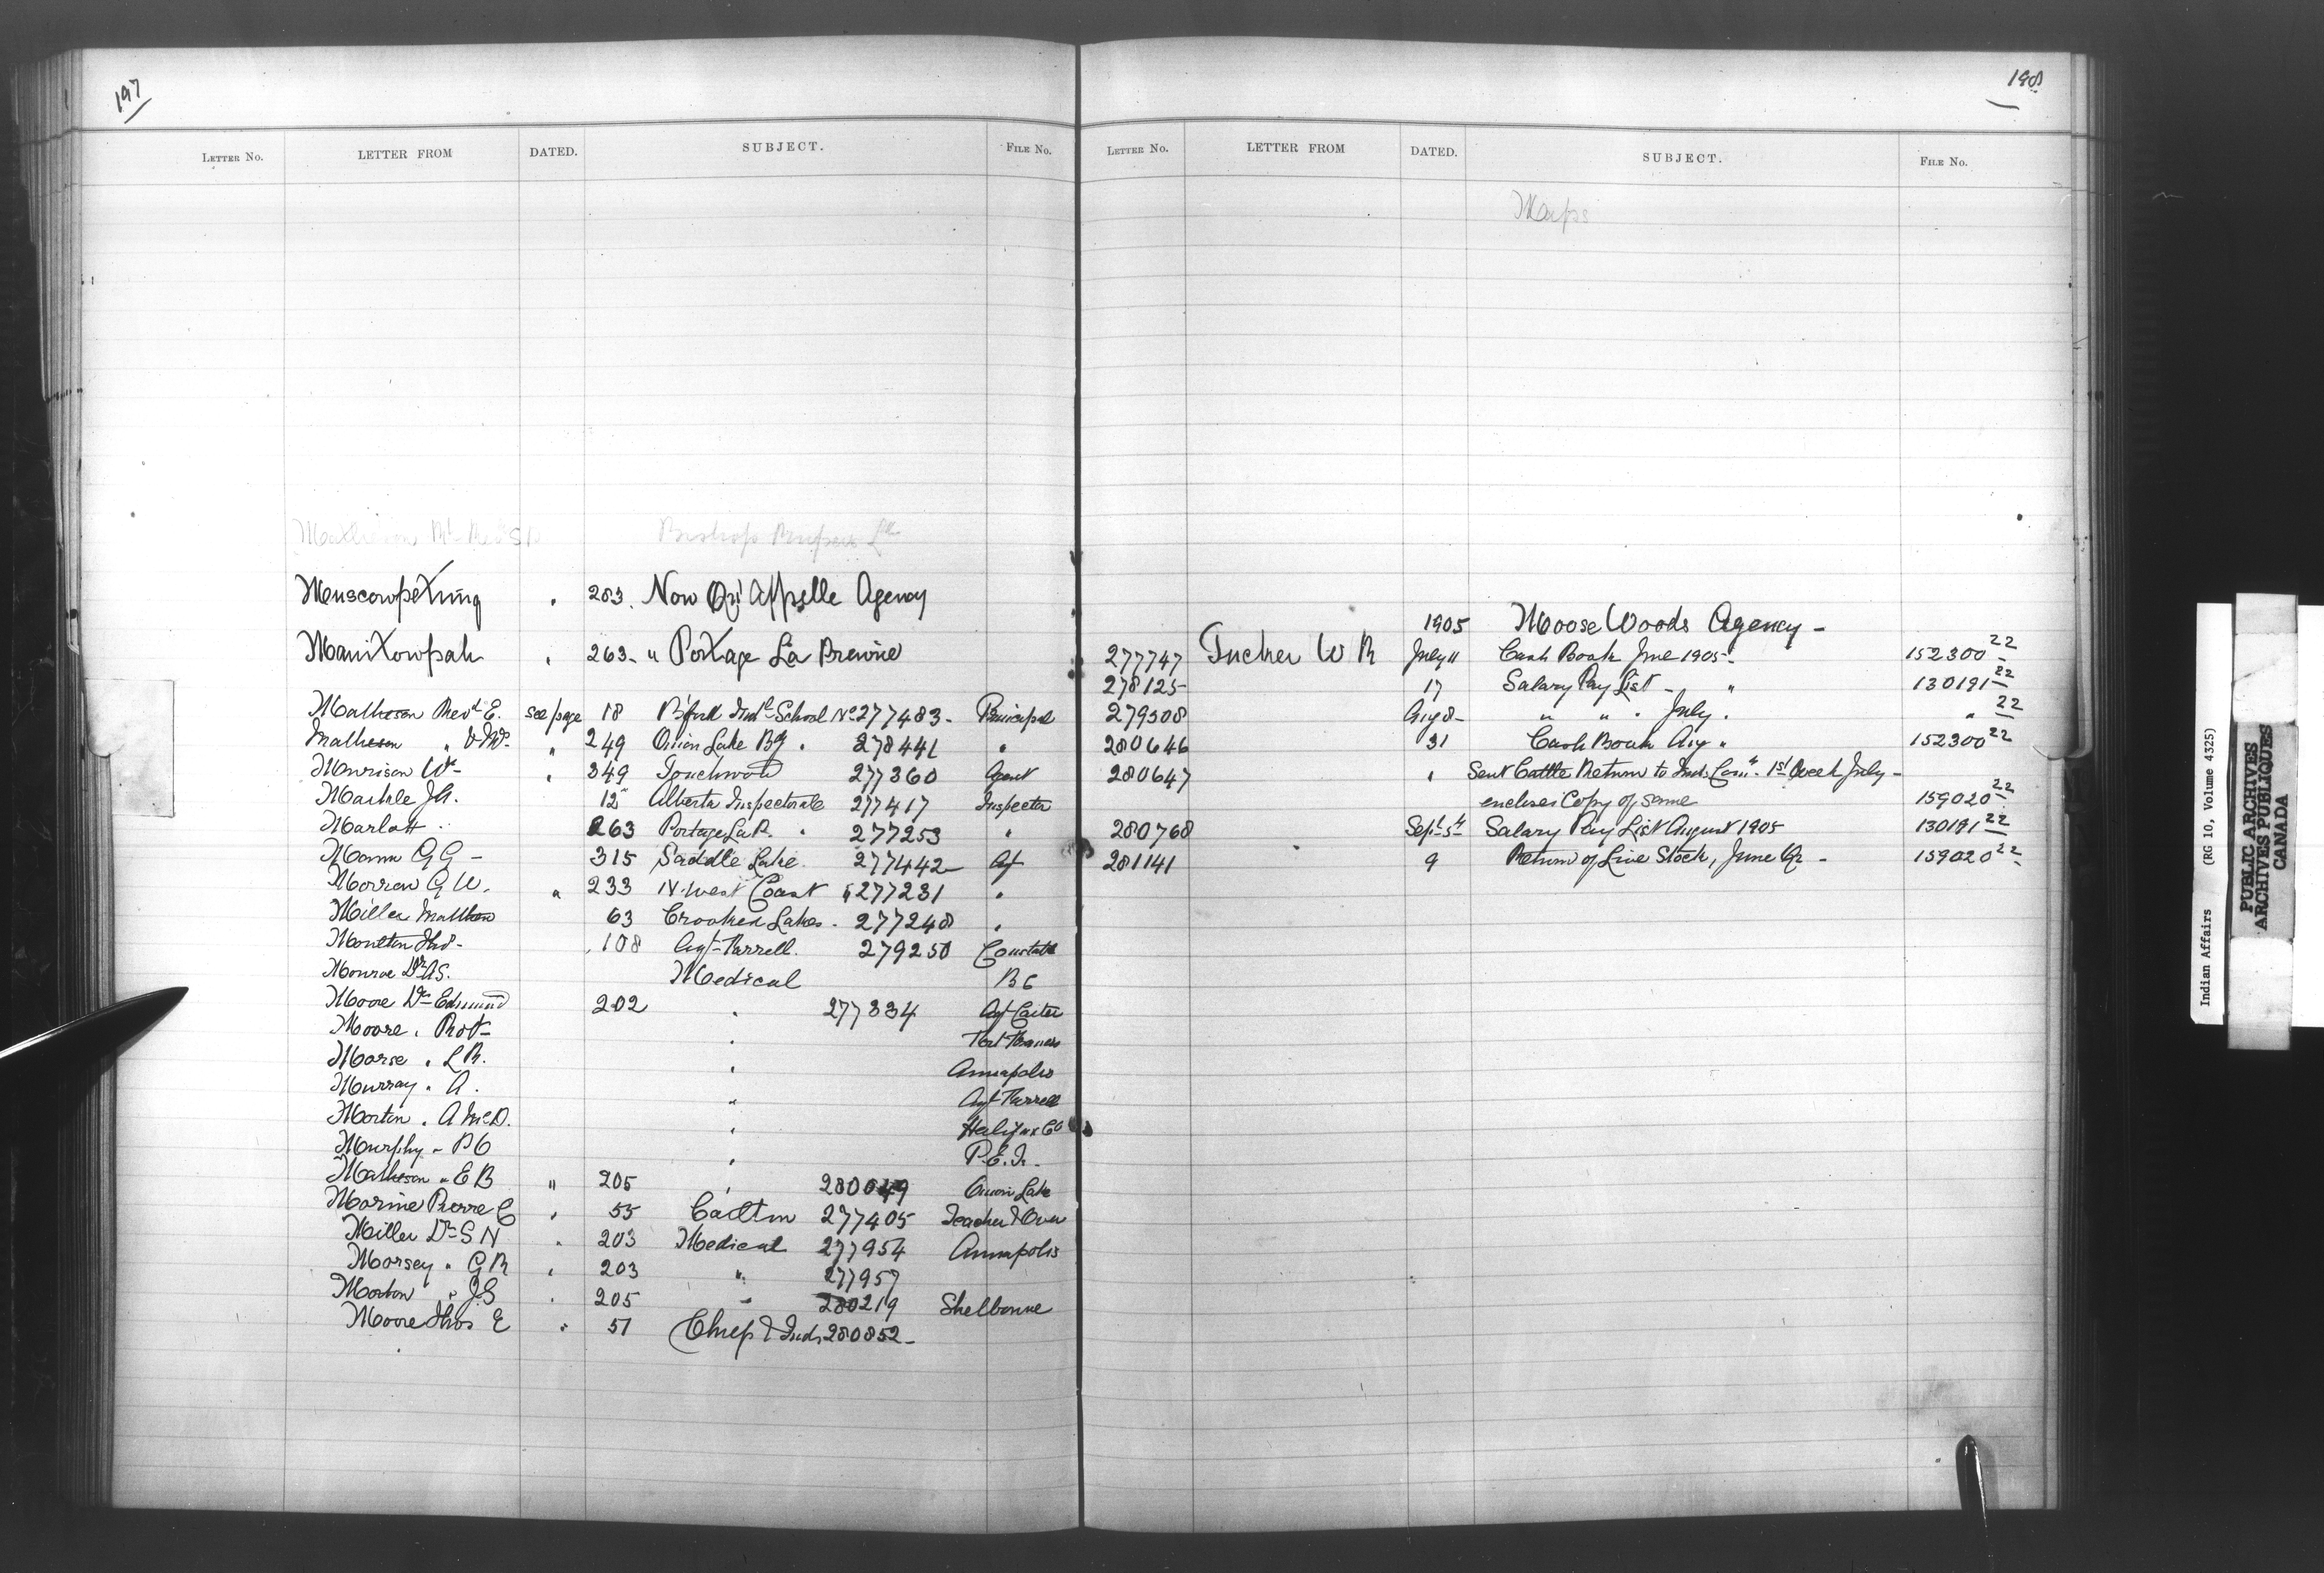 197
LETTER NO. LETTER FROM DATED. SUBJECT. FILE NO.
Muscowpetung " 283. Now Qu'Appelle Agency
Manitowpah " 263 - " Portage La Prairie
Matheson Revd E. see page 18 B'ford Indl School No 277483 - Principal
Matheson " " 249 Onion Lake Bg " 278441 "
Morrison Wm " 349 Touchwood 277360 Agent
Markle J.A. 12 Alberta Inspectorate 277417 Inspector
Marlatt 263 Portage La P. " 277253 "
Mann G G - 315 Saddle Lake 277442 Agt
Morrow G W. " 233 N. West Coast " 277231 "
Miller Matthew 63 Crooked Lakes - 277248 "
Moulton Thos - 108 Agt Farrell. 279250 Constable
Monroe Dr A S. Medical B C
Moore Dr Edmund 202 " 277334 Agt Carter
Moore " Robt - " Fort Frances
Morse " L R. " Annapolis
Murray " A. " Agt Farrell
Morton " A McD. " Halifax Co
Murphy " P C " P.E.I.
Matheson " E B " 205 " 280049 Onion Lake
Morine Pierre C " 55 Carlton 277405 Teacher & Over
Miller Dr S N " 203 Medical 277954 Annapolis
Morsey " G R " 203 " 277957
Morton " J.S " 205 " 280219 Shelborne
Moore Thos E " 51 Chiefs & Inds 280852 -
198
LETTER NO. LETTER FROM DATED. SUBJECT. FILE NO.
Maps
1905 Moose Woods Agency -
277747 Tucker W R July 11 Cash Book June 1905 - 152300 22
278125 17 Salary Pay List - " 130191 22
279508 Aug 8 - " " " July. " 22
280646 31 Cash Book Aug " 152300 22
280647 " Sent Cattle Return to Ind. Comr. 1st Week July -
encloses Copy of same 159020 22
280768 Sept 5th Salary Pay List August 1905 130191 22
281141 9 Return of Live Stock, June Qr - 159020 22
Indian Affairs (RG 10, Volume 4325)
PUBLIC ARCHIVES
ARCHIVES PUBLIQUES
CANADA